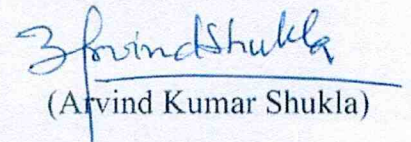 Arvind Shukla
(Arvind Kumar Shukla)